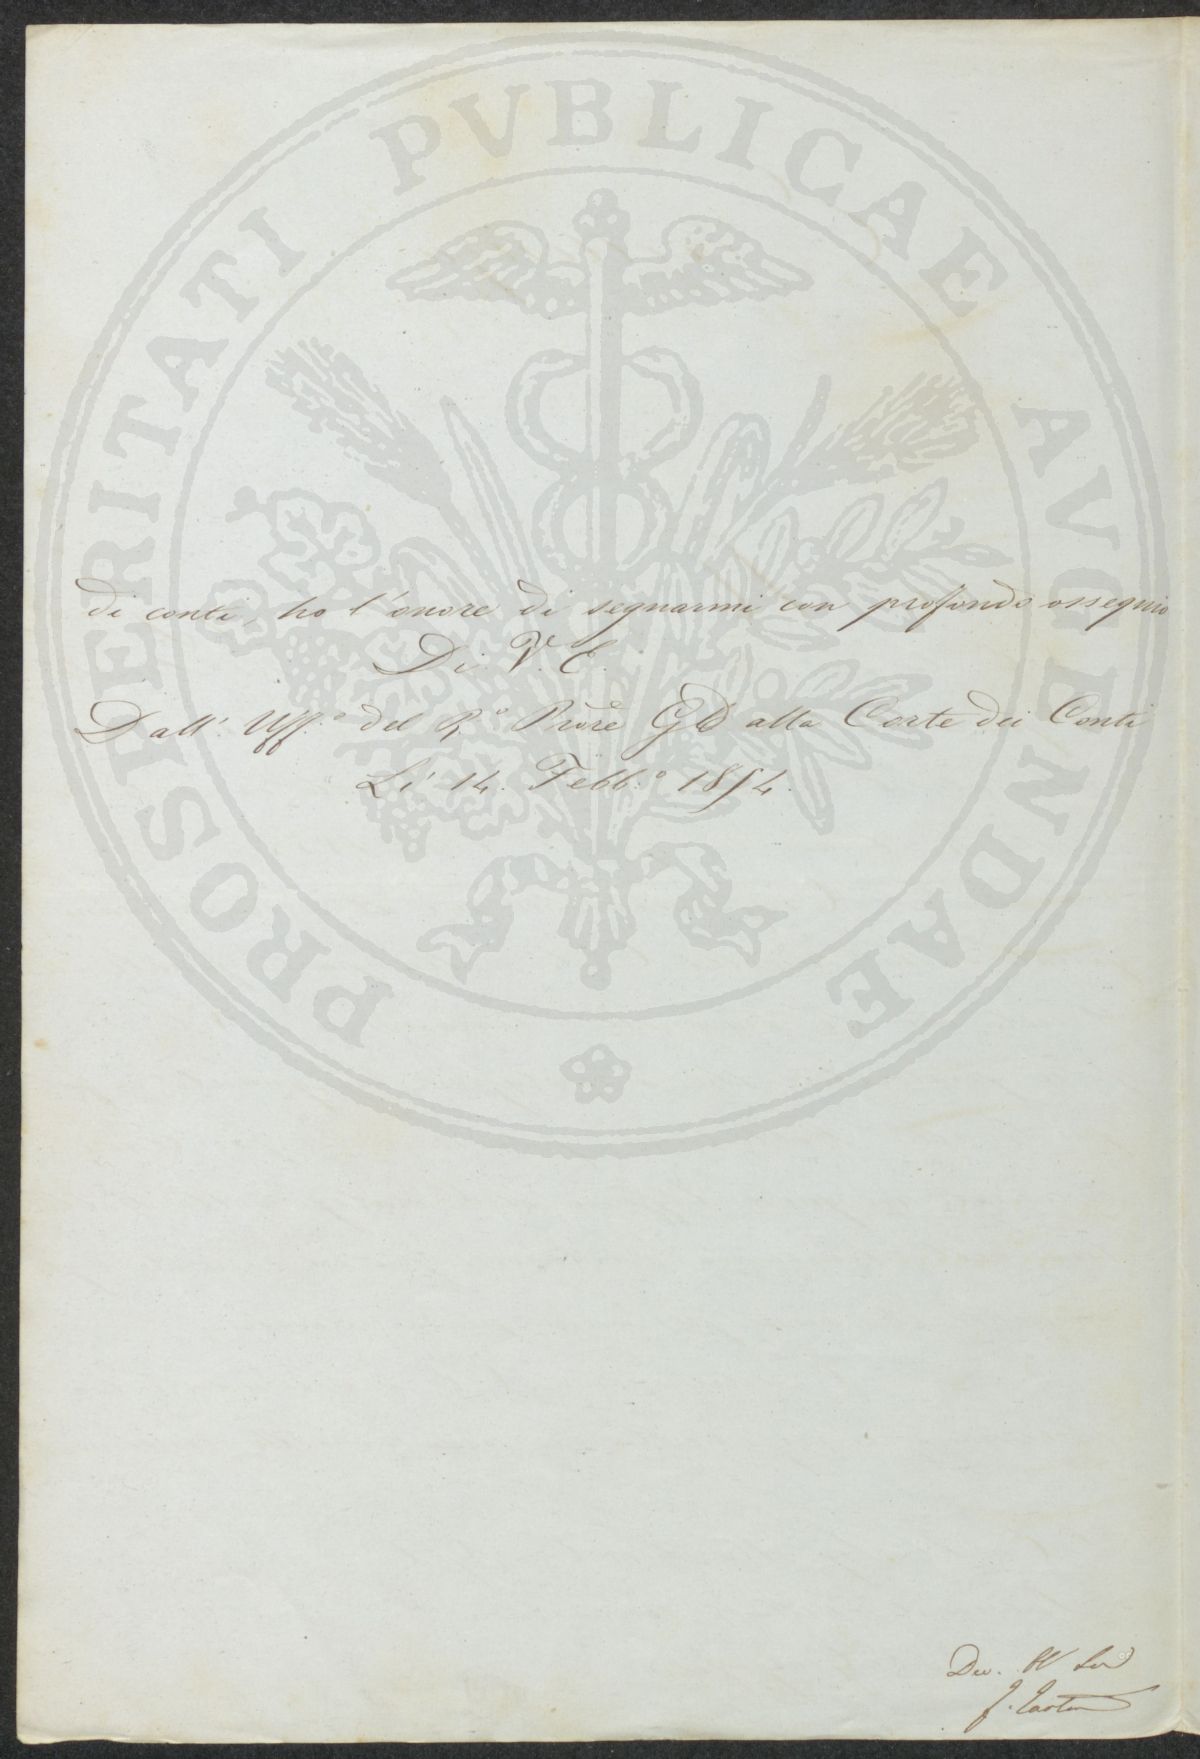 PROSPERITATI PVBLICAE AVGENDAE
di conti, ho l'onore di segnarmi con profondo ossequio
Di V. E.
Dall'. Uff.o del R.o Prore GD alla Corte dei Conti
Li 14. Febb.o 1854.
Dev.